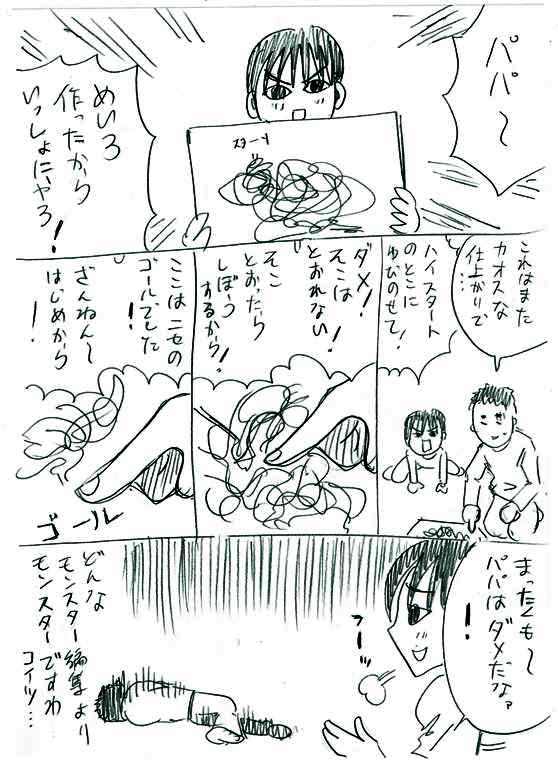 パパ〜
めいろ
作ったから
いっしょにやろ!
スタート
これはまた
カオスな
仕上がりで…
ハイスタート
のとこに
ゆびのせて!
ダメ!
そこは
とおれない!
そこ
とおったら
しぼう
するから!
ここはニセの
ゴールでした!
ざんねん〜
はじめから!
ゴール
まったくも〜
パパはダメだなァ!
フーッ
どんな
モンスター編集より
モンスターですわ
コイツ…